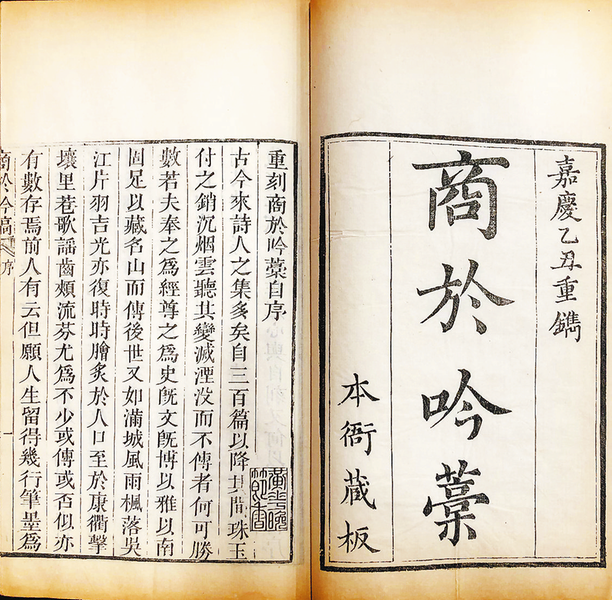 嘉慶乙丑重鐫
商於吟藁
本衙藏板
重刻商於吟藁自序
古今來詩人之集多矣自三百篇以降其間珠玉
付之銷沉烟雲聽其變滅湮没而不傳者何可勝
數若夫奉之為經尊之為史旣文旣博以雅以南
固足以藏名山而傳後世又如滿城風雨楓落吳
江片羽吉光亦復時時膾炙於人口至於康衢擊
壤里巷歌謡齒頰流芬尤為不少或傳或否似亦
有數存焉前人有云但願人生留得幾行筆墨為
商於吟稿
序
一